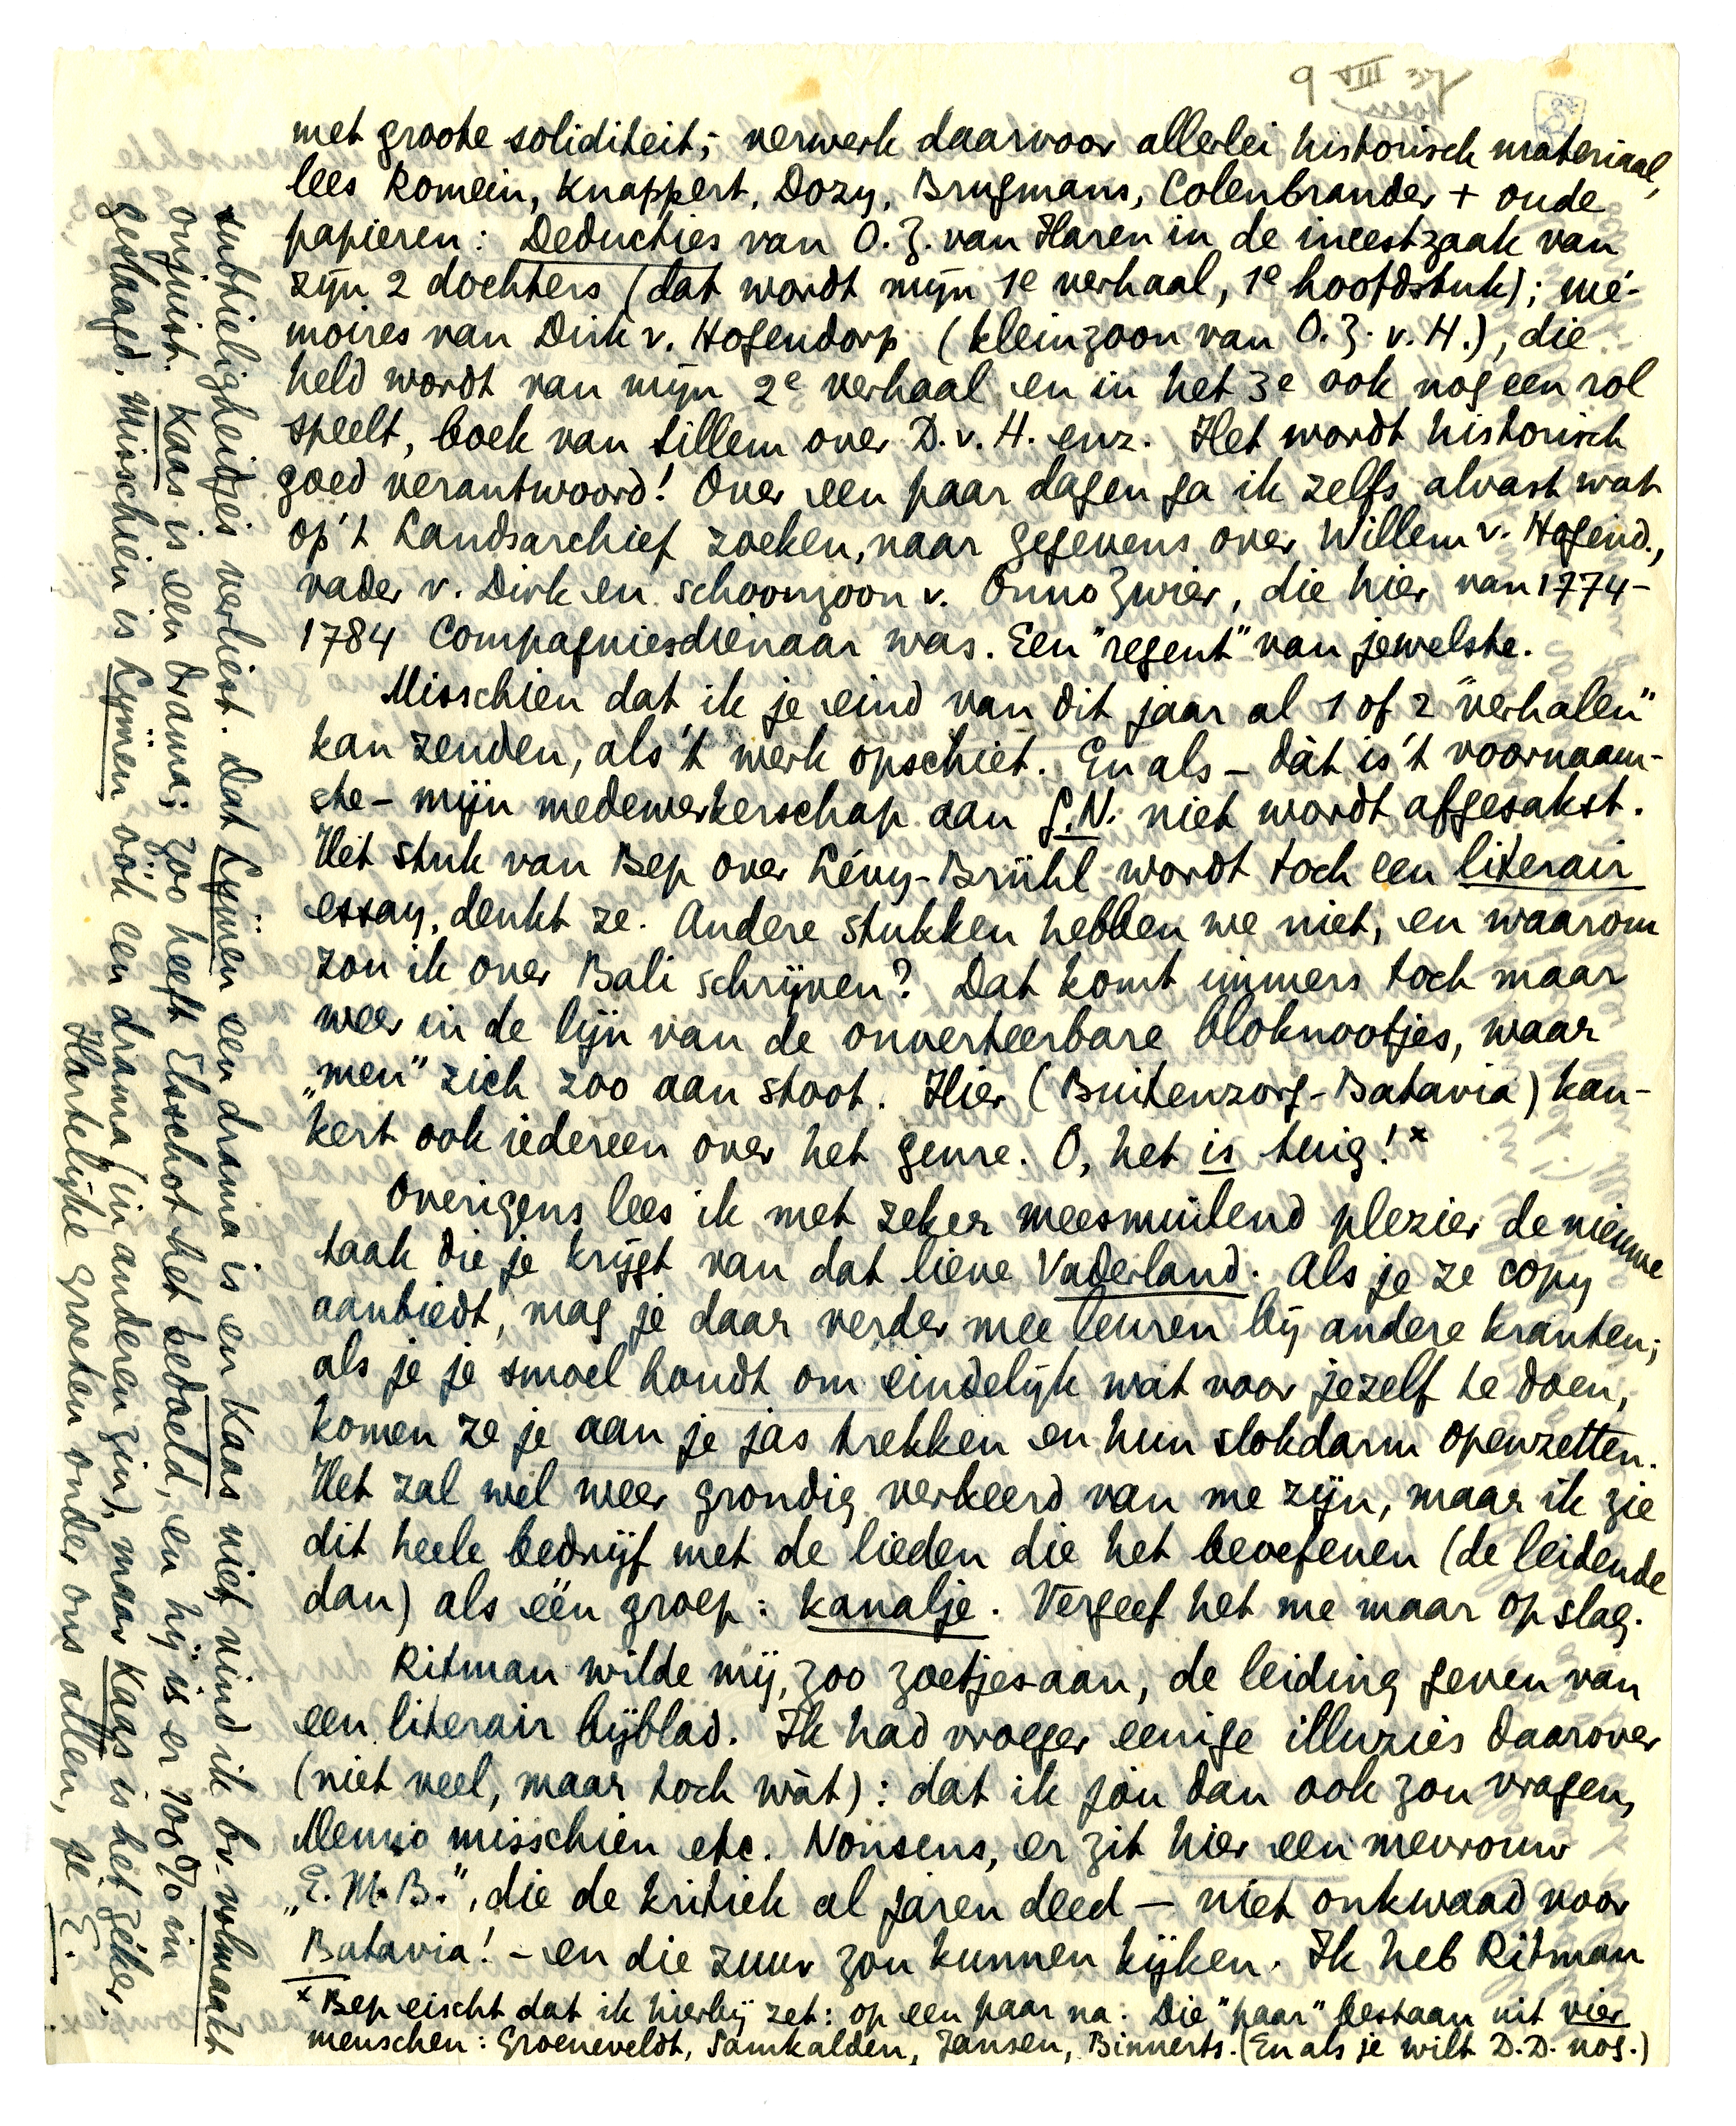 9 VIII 37
met groote soliditeit; verwerk daarvoor allerlei historisch materiaal,
lees Romein, Knappert, Dozy, Brugmans, Colenbrander + oude
papieren: Deducties van O.Z. van Haren in de incestzaak van
zijn 2 dochters (dat wordt mijn 1e verhaal, 1e hoofdstuk); mé-
moires van Dirk v. Hogendorp (kleinzoon van O.Z. v. H.), die
held wordt van mijn 2e verhaal en in het 3e ook nog een rol
speelt, boek van Sillem over D. v. H. enz. Het wordt historisch
goed verantwoord! Over een paar dagen ga ik zelfs alvast wat
op 't Landsarchief zoeken, naar gegevens over Willem v. Hogend.,
vader v. Dirk en schoonzoon v. Onno Zwier, die hier van 1774-
1784 Compagniesdienaar was. Een "regent" van jewelste.
Misschien dat ik je eind van dit jaar al 1 of 2 "verhalen"
kan zenden, als 't werk opschiet. En als - dàt is 't voornaam-
ste - mijn medewerkerschap aan G.N. niet wordt afgesakst.
Het stuk van Bep over Lévy-Brühl wordt toch een literair
essay, denkt ze. Andere stukken hebben we niet, en waarom
zou ik over Bali schrijven? Dat komt immers toch maar
weer in de lijn van de onverteerbare bloknootjes, waar
„men" zich zoo aan stoot. Hier (Buitenzorg-Batavia) kan-
kert ook iedereen over het genre. O, het is tuig! x
Overigens lees ik met zeker meesmuilend plezier de nieuwe
taak die je krijgt van dat lieve Vaderland. Als je ze copy
aanbiedt, mag je daar verder mee leuren bij andere kranten;
als je je smoel houdt om eindelijk wat voor jezelf te doen,
komen ze je aan je jas trekken en hun slokdarm openzetten.
Het zal wel weer grondig verkeerd van me zijn, maar ik zie
dit heele bedrijf met de lieden die het beoefenen (de leidende
dan) als één groep: kanalje. Vergeef het me maar op slag.
Ritman wilde mij, zoo zoetjesaan, de leiding geven van
een literair bijblad. Ik had vroeger eenige illuzies daarover
(niet veel, maar toch wàt): dat ik jou dan ook zou vragen,
Menno misschien etc. Nonsens, er zit hier een mevrouw
„E. M. B.", die de kritiek al jaren deed — niet onkwaad voor
Batavia! - en die zuur zou kunnen kijken. Ik heb Ritman
x Bep eischt dat ik hierbij zet: op een paar na. Die "paar" bestaan uit vier
menschen: Groeneveldt, Samkalden, Jansen, Binnerts. (En als je wilt D.D. nog.)
subtieligheidjes verliest. Dat Lijmen een drama is en Kaas niet vind ik bv. volmaakt
onjuist. Kaas is een drama; zoo heeft Elsschot het bedoeld, en hij is er 100% in
geslaagd. Misschien is Lijmen óók een drama (in anderen zin), maar Kaas is het zéker.
Hartelijke groeten onder ons allen, je E.